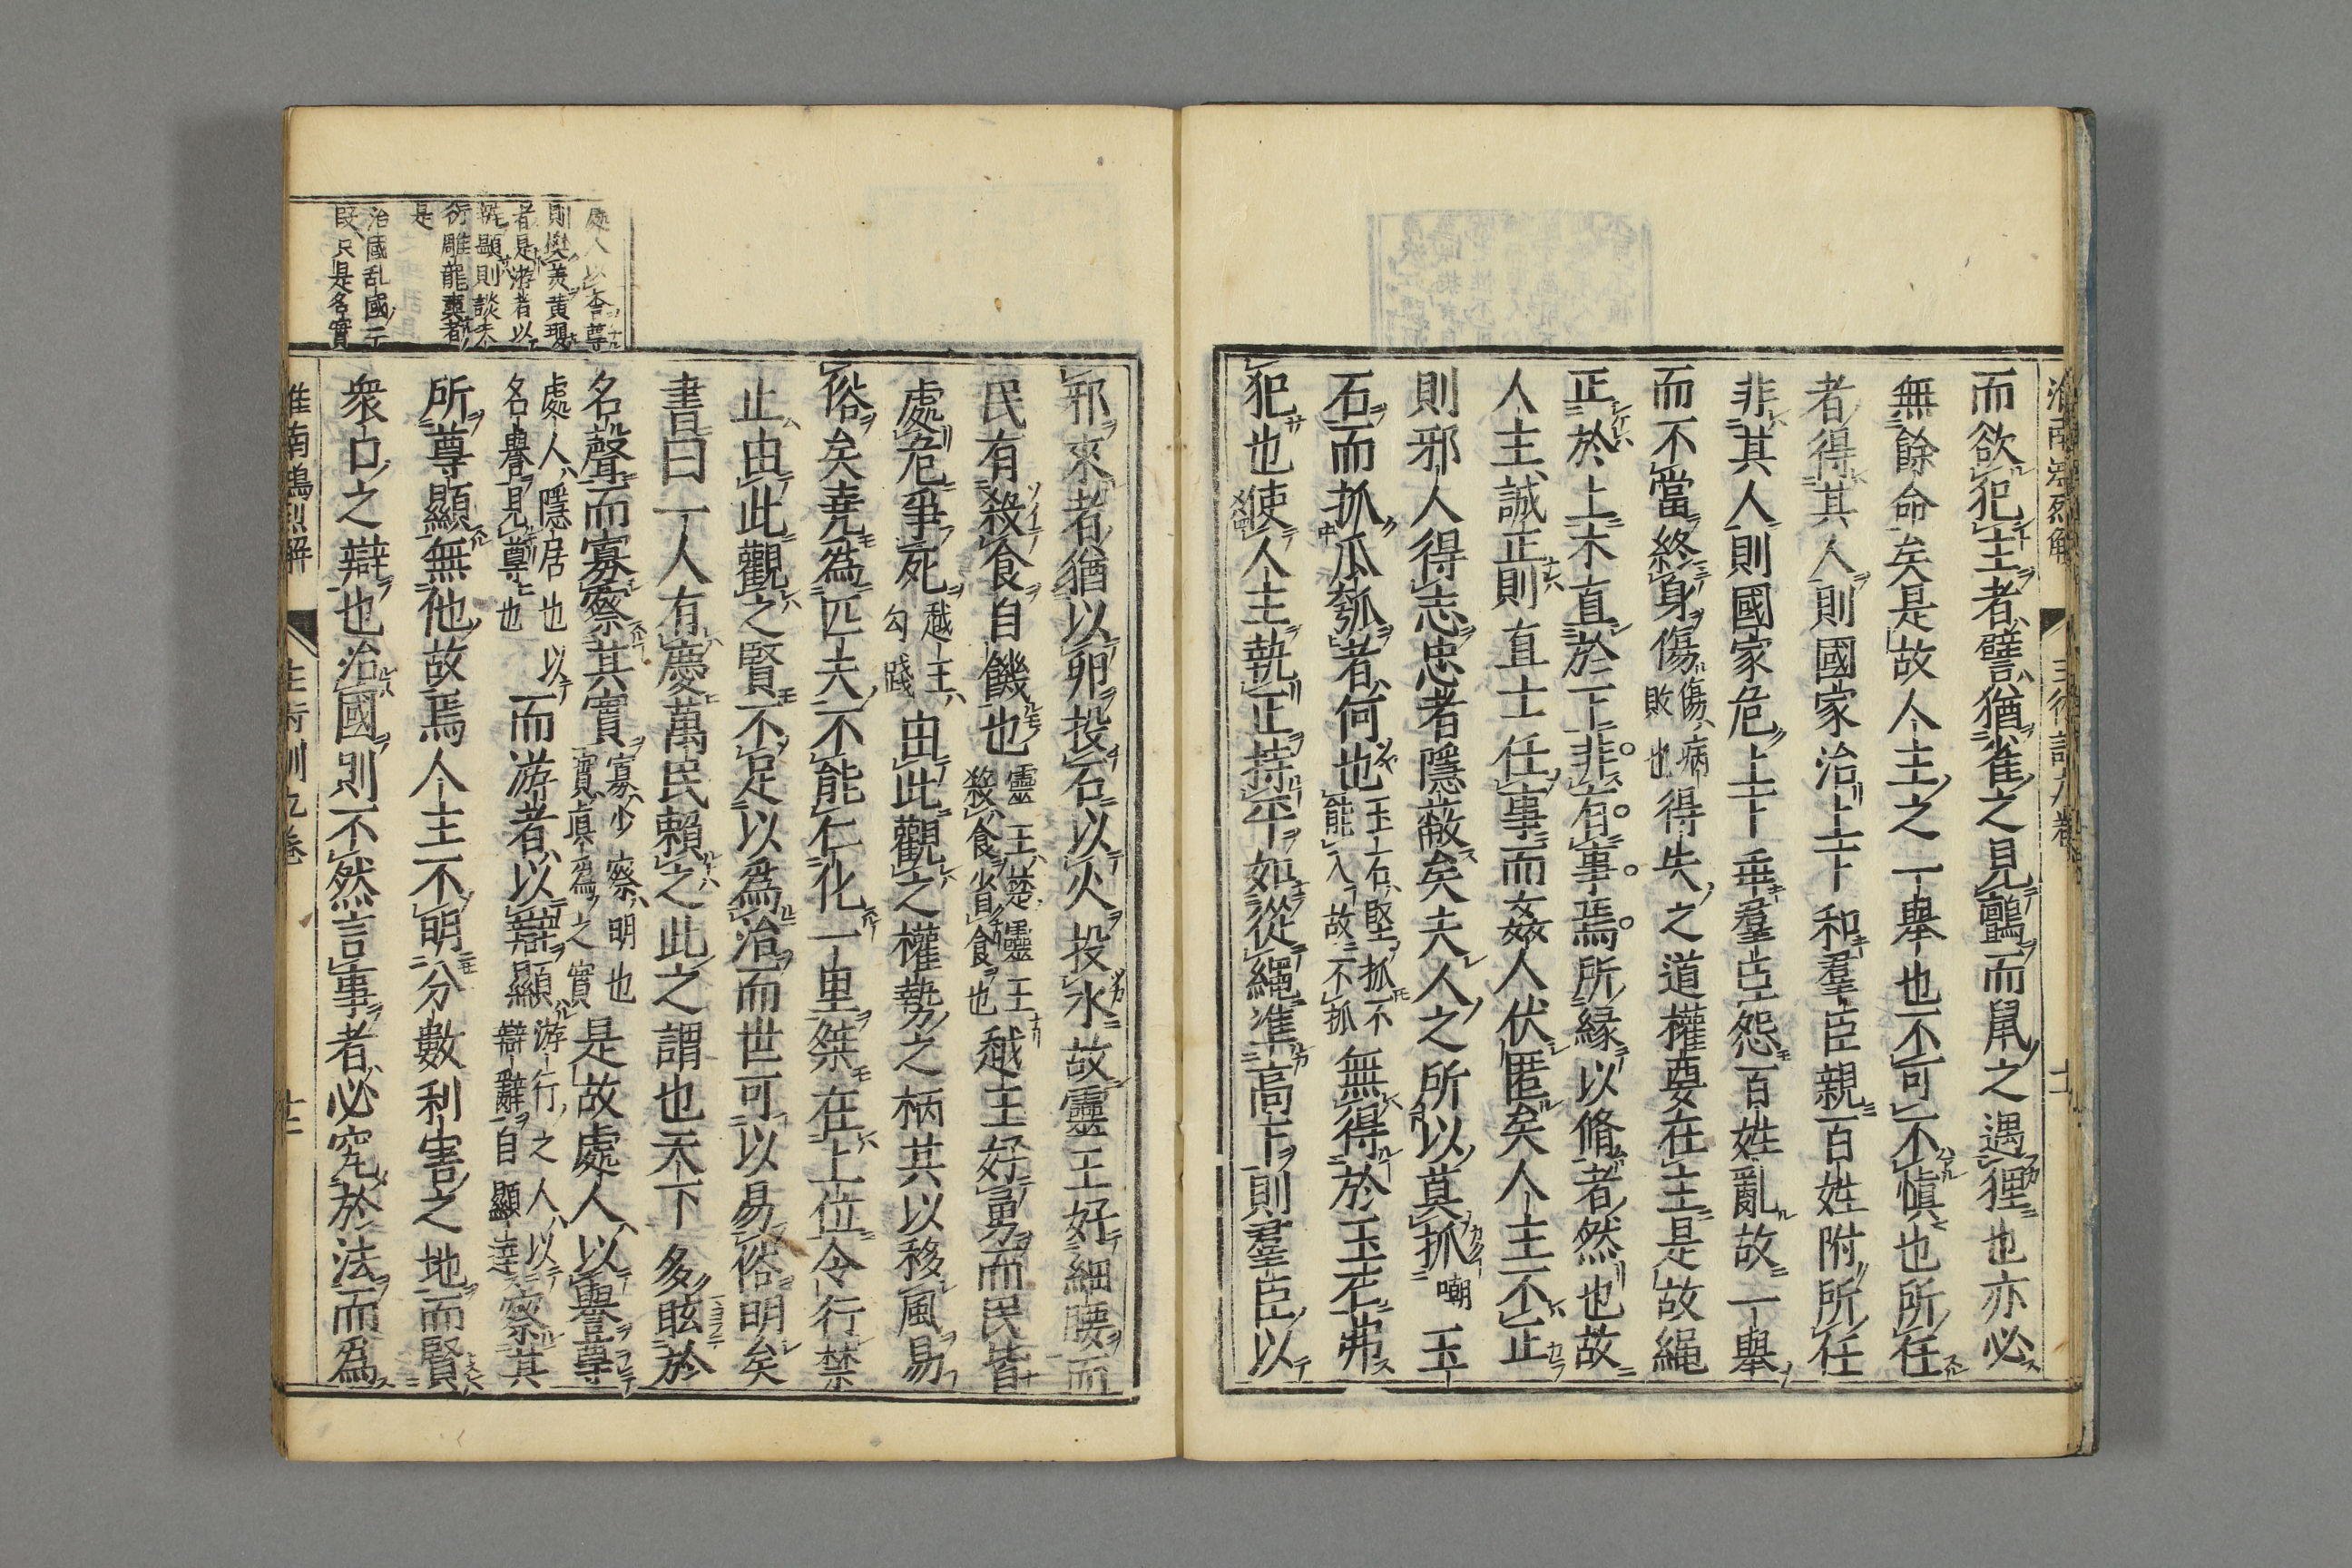 而欲犯主者譬猶雀之見鸇而鼠之遇狸也亦必
無餘命矣是故人主之一舉也不可不愼也所任
者得其人則國家治上下和羣臣親百姓附所任
非其人則國家危上下乖羣臣怨百姓亂故一舉
而不當終身傷傷病敗也得失之道權要在主是故繩
正於上木直於下非有事焉所緣以脩者然也故
人主誠正則直士任事而姦人伏匿矣人主不正
則邪人得志忠者隱蔽矣夫人之所以莫抓嘲玉
石而抓瓜瓠者何也玉石堅抓不能入故不抓無得於玉石弗
犯也使人主執正持平如從繩準高下則羣臣以
邪來者猶以卵投石以火投水故靈王好細腰而
民有殺食自饑也靈王楚靈王殺食省食也越王好勇而民皆
處危爭死越王勾踐由此觀之權勢之柄其以移風易
俗矣堯爲匹夫不能仁化一里桀在上位令行禁
止由此觀之賢不足以爲治而世可以易俗明矣
書曰一人有慶萬民賴之此之謂也天下多眩於
名聲而寡察其實寡少察明也實眞爲之實是故處人以譽尊
處人隱居也以名譽見尊也而游者以辯顯游行之人以辯辭自顯達察其
所尊顯無他故焉人主不明分數利害之地而賢
衆口之辯也治國則不然言事者必究於法而爲
淮南鴻烈解
主術訓九卷
十二
治國乱國二
段只是名實